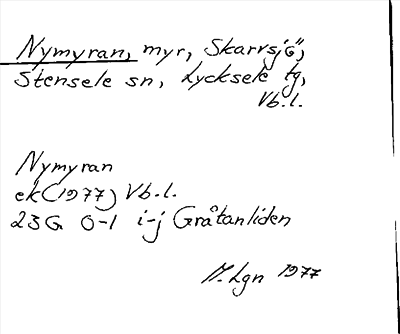 Nymyran, myr, Skarvsjö,
Stensele sn, Lycksele tg,
Vb.l.
Nymyran
ek (1977) Vb.l.
23G 0-1 i-j Gråtanliden
M. Lgn 1977